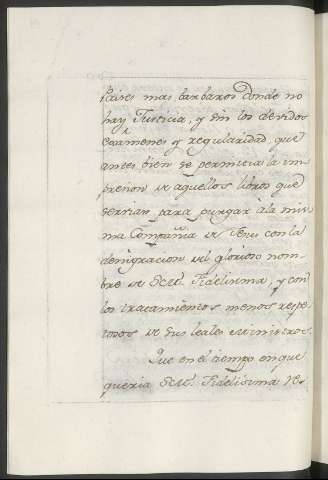 Paises mas barbaros donde no
hay Justicia, y sin los devidos
examenes y regularidad, que
antes bien se permitia la im
presion de aquellos libros que
servian para purgar á la mis
ma Compañia de Jesus con la
denigracion del glorioso nom-
bre de S.M. Fidelisima, y con
los tratamientos menos respe
tosos de sus leales Ministros.
Que en el tiempo en que
queria S.M. Fidelisima re-